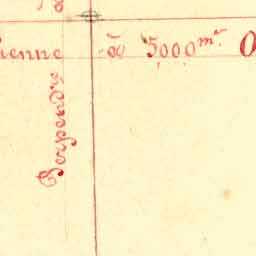 ienne do 5000 m. O
Perpend.re